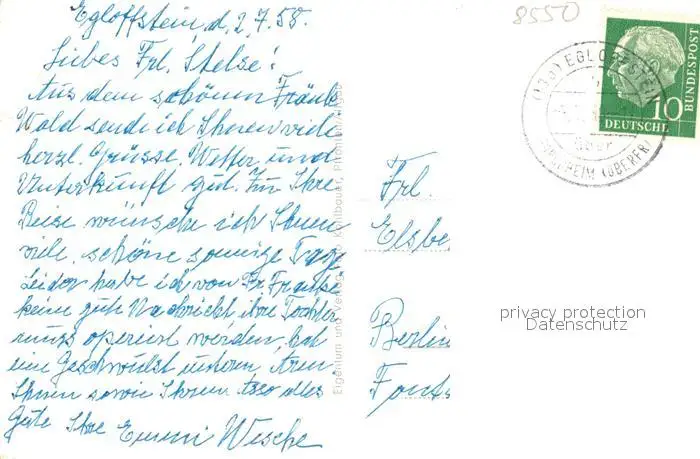 Egloffstein, d. 2.7.58.
8550
Liebes Frl. Stelse!
Aus dem schönen Fränk.
Wald sende ich Ihnen viele
herzl. Grüsse. Wetter und
Unterkunft gut. Für Ihre
Reise wünsche ich Ihnen
viele schöne sonnige Tage
Leider habe ich von Fr. Franke
keine gute Nachricht ihre Tochter
muss operiert werden, hat
eine Geschwulst
Ihnen sowie Ihrem alles
Gute Ihre Emmi Wesche
Eigentum und Verlag
Frl.
Elsbe
Berlin
Fonta
(13a) EGLOFFSTEIN
über
FORCHHEIM (OBERFR)
10
DEUTSCHE
BUNDESPOST
privacy protection
Datenschutz